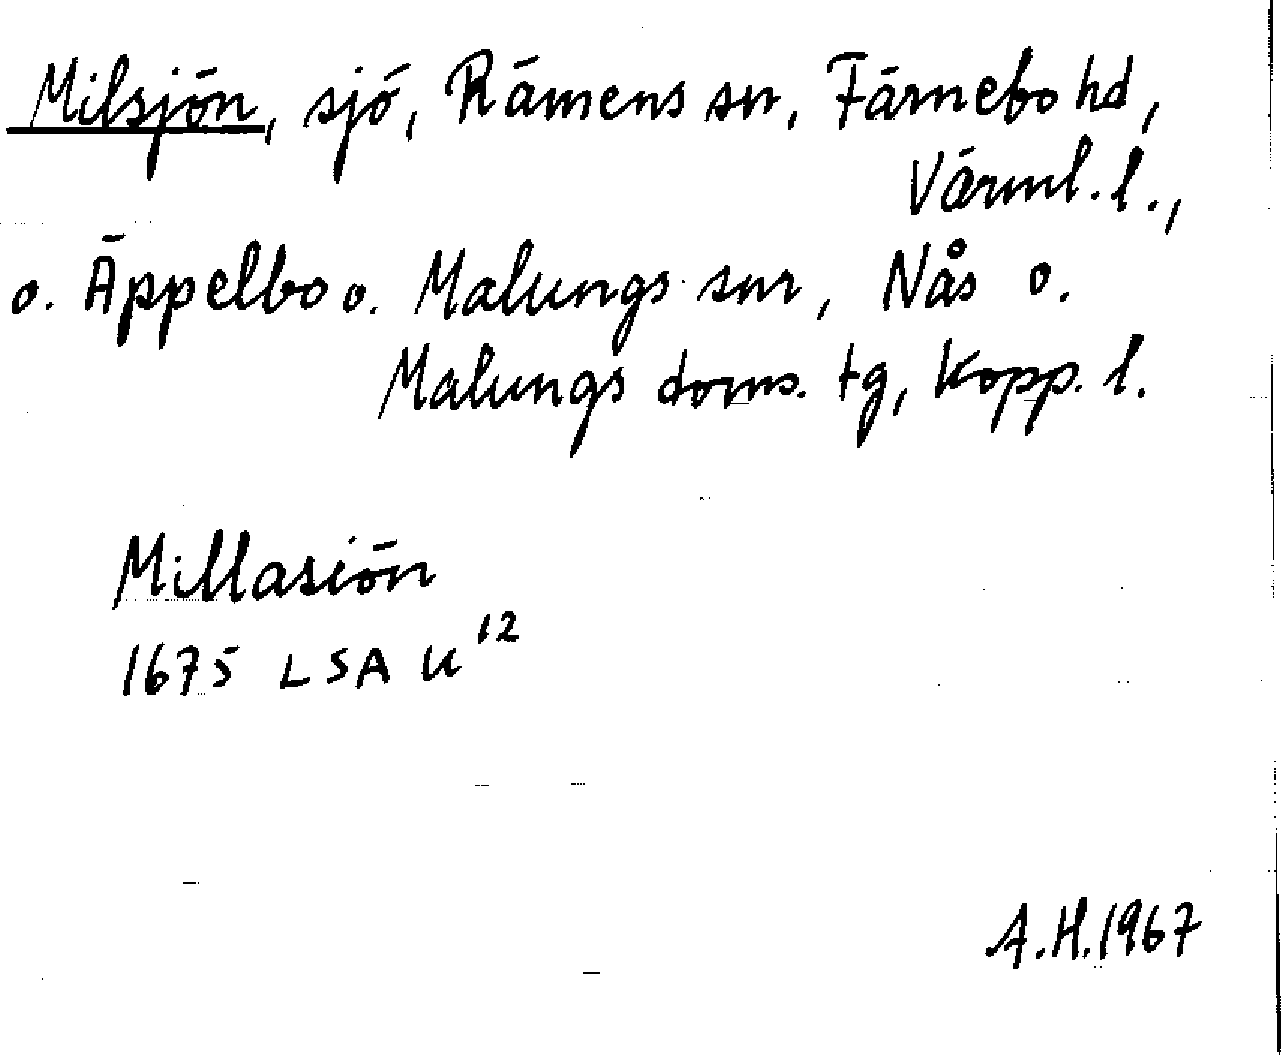 Milsjön, sjö, Rämens sn, Färnebo hd,
Värml. l.,
o. Äppelbo o. Malungs snr, Nås o.
Malungs doms. tg, Kopp. l.
Millasiön
1675 LSA U¹²
A.H. 1967